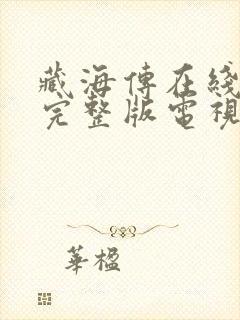 藏海傳在綫
完整版電視
華楹